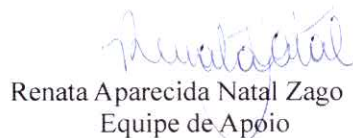 Renata Aparecida Natal Zago
Equipe de Apoio